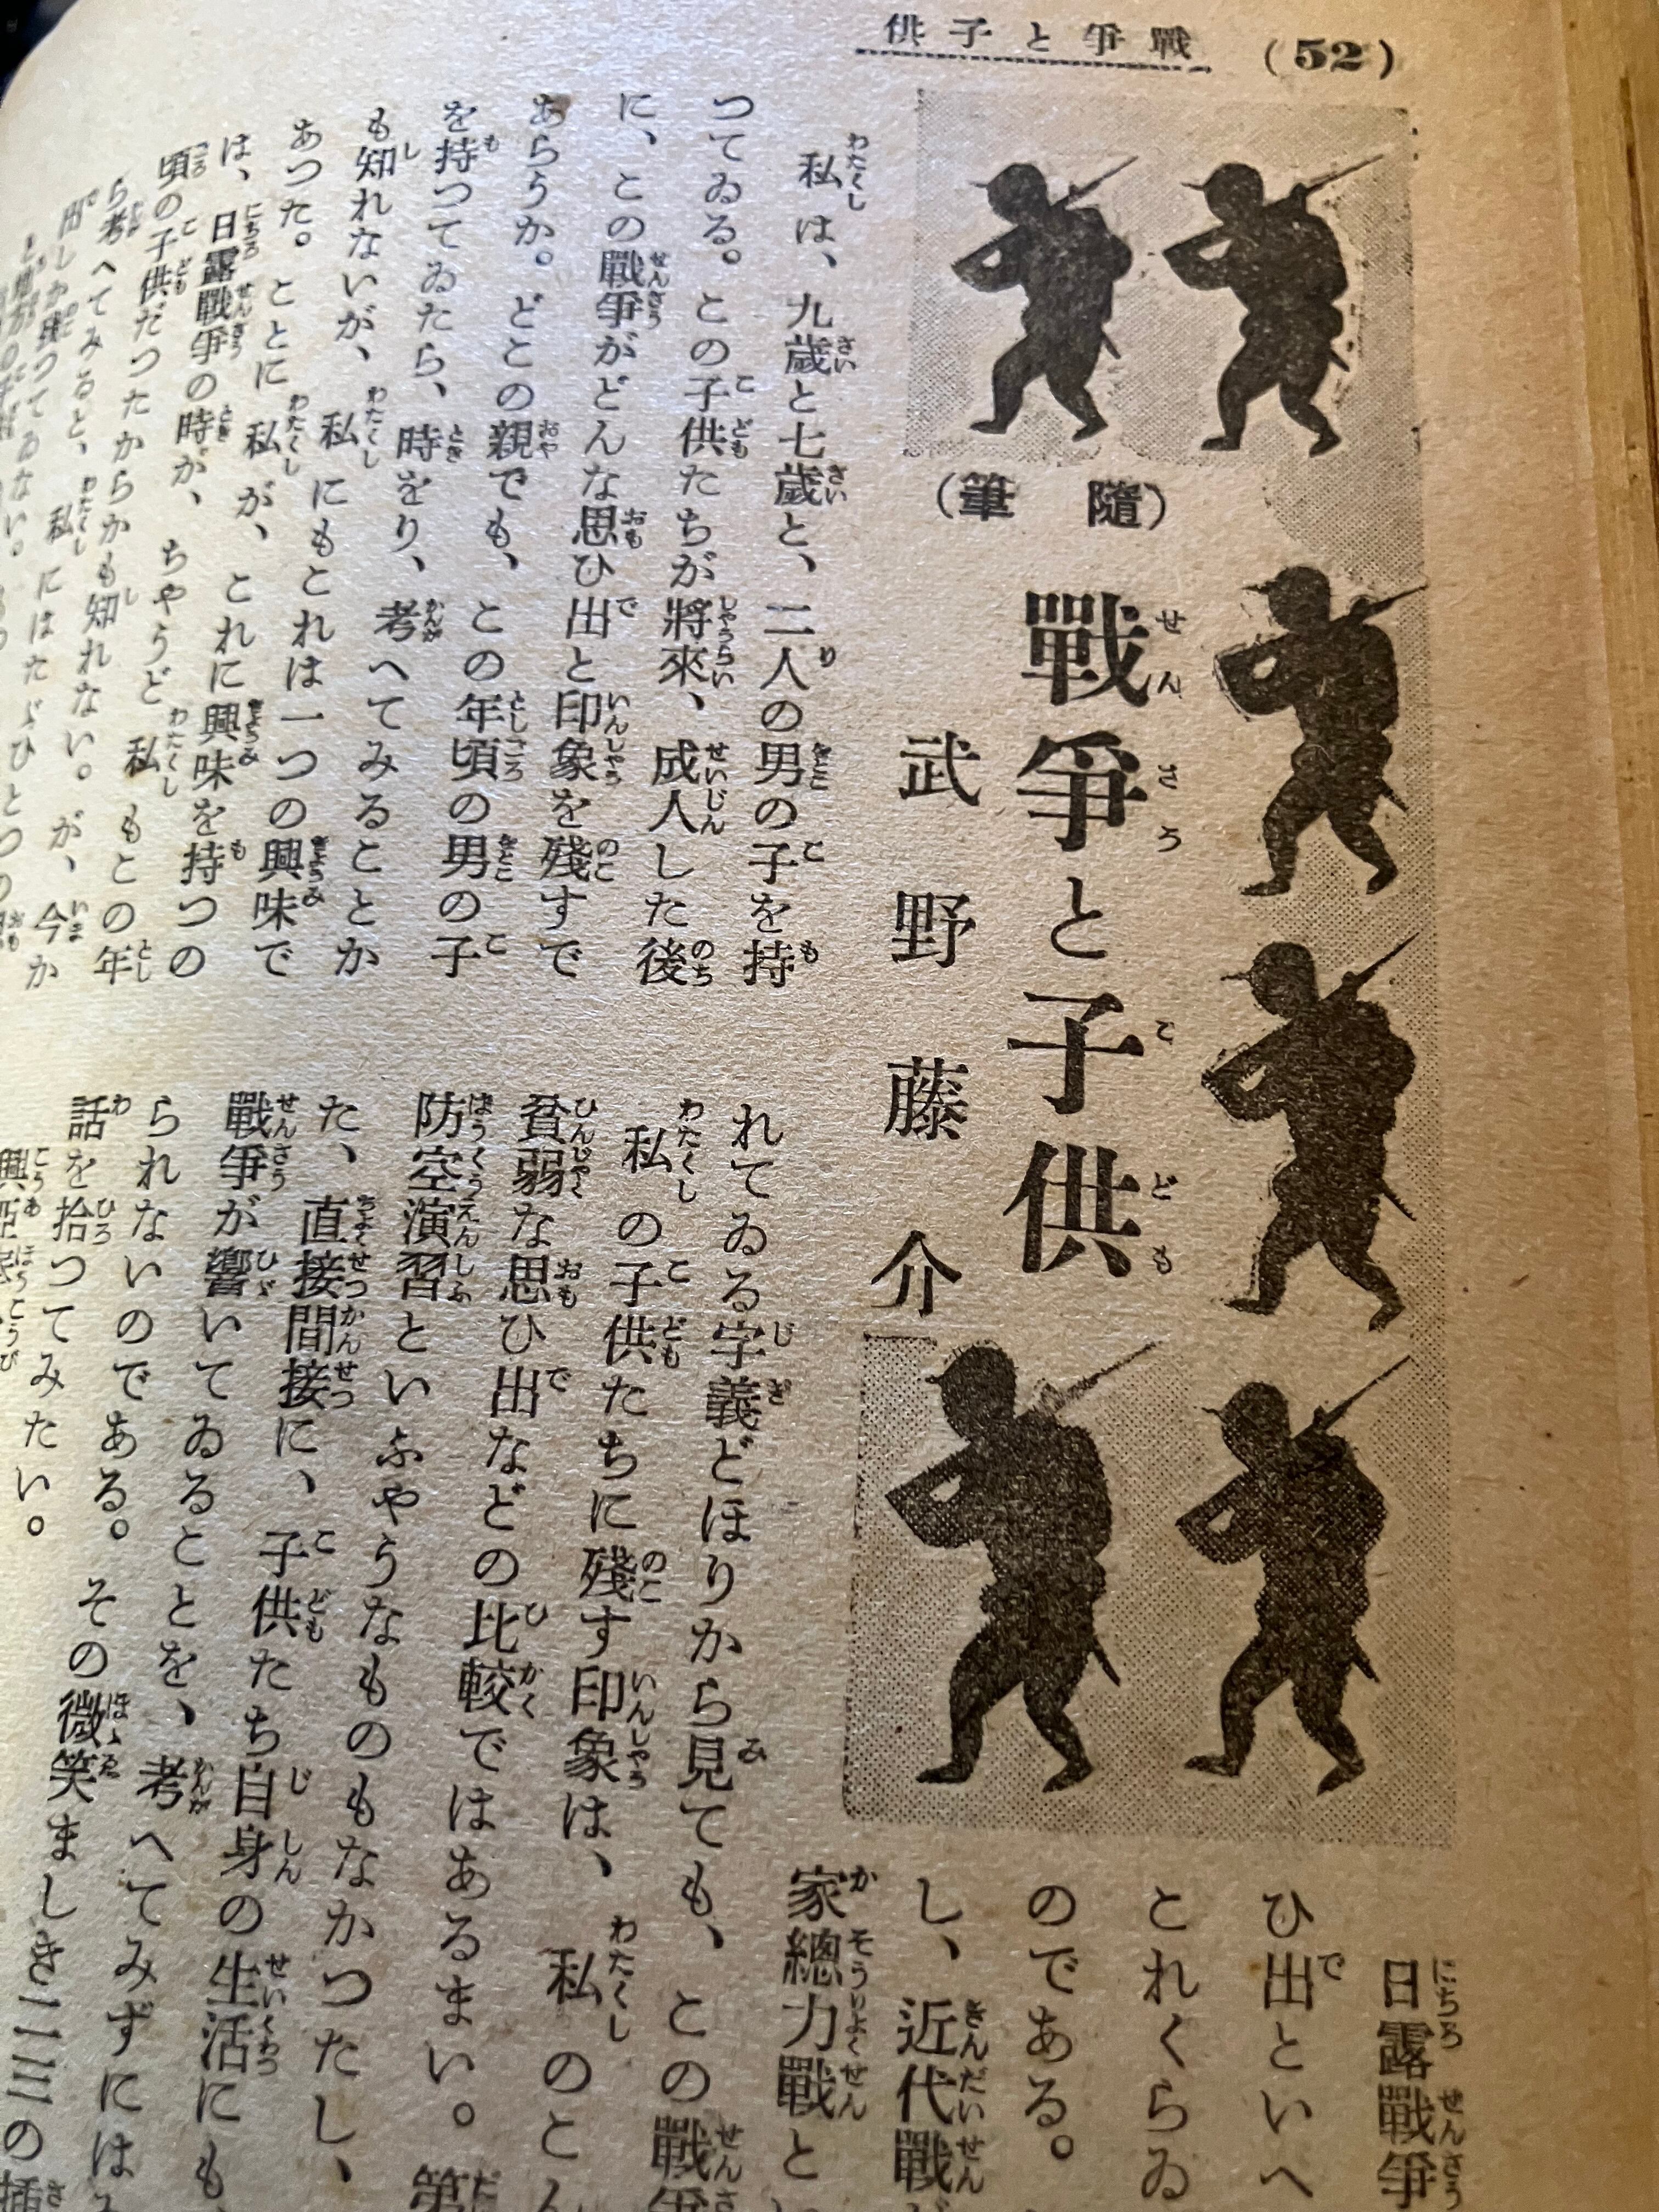 (52)
戰爭と子供
(隨筆)
戰爭と子供
武野藤介
私は、九歲と七歲と、二人の男の子を持
つてゐる。この子供たちが將來、成人した後
に、この戰爭がどんな思ひ出と印象を殘すで
あらうか。どこの親でも、この年頃の男の子
を持つてゐたら、時をり、考へてみることか
も知れないが、私にもこれは一つの興味で
あつた。ことに私が、これに興味を持つの
は、日露戰爭の時が、ちやうど私もこの年
頃の子供だつたからかも知れない。が、今か
ら考へてみると、私にはたゞひとつの
出しか殘つてゐない。
日露戰爭
ひ出といへ
これくらゐ
のである。
し、近代戰
家總力戰と
れてゐる字義どほりから見ても、この戰爭
私の子供たちに殘す印象は、私のこん
貧弱な思ひ出などの比較ではあるまい。第
防空演習といふやうなものもなかつたし、
た、直接間接に、子供たち自身の生活にも
戰爭が響いてゐることを、考へてみずには
られないのである。その微笑ましき二三の插
話を拾つてみたい。